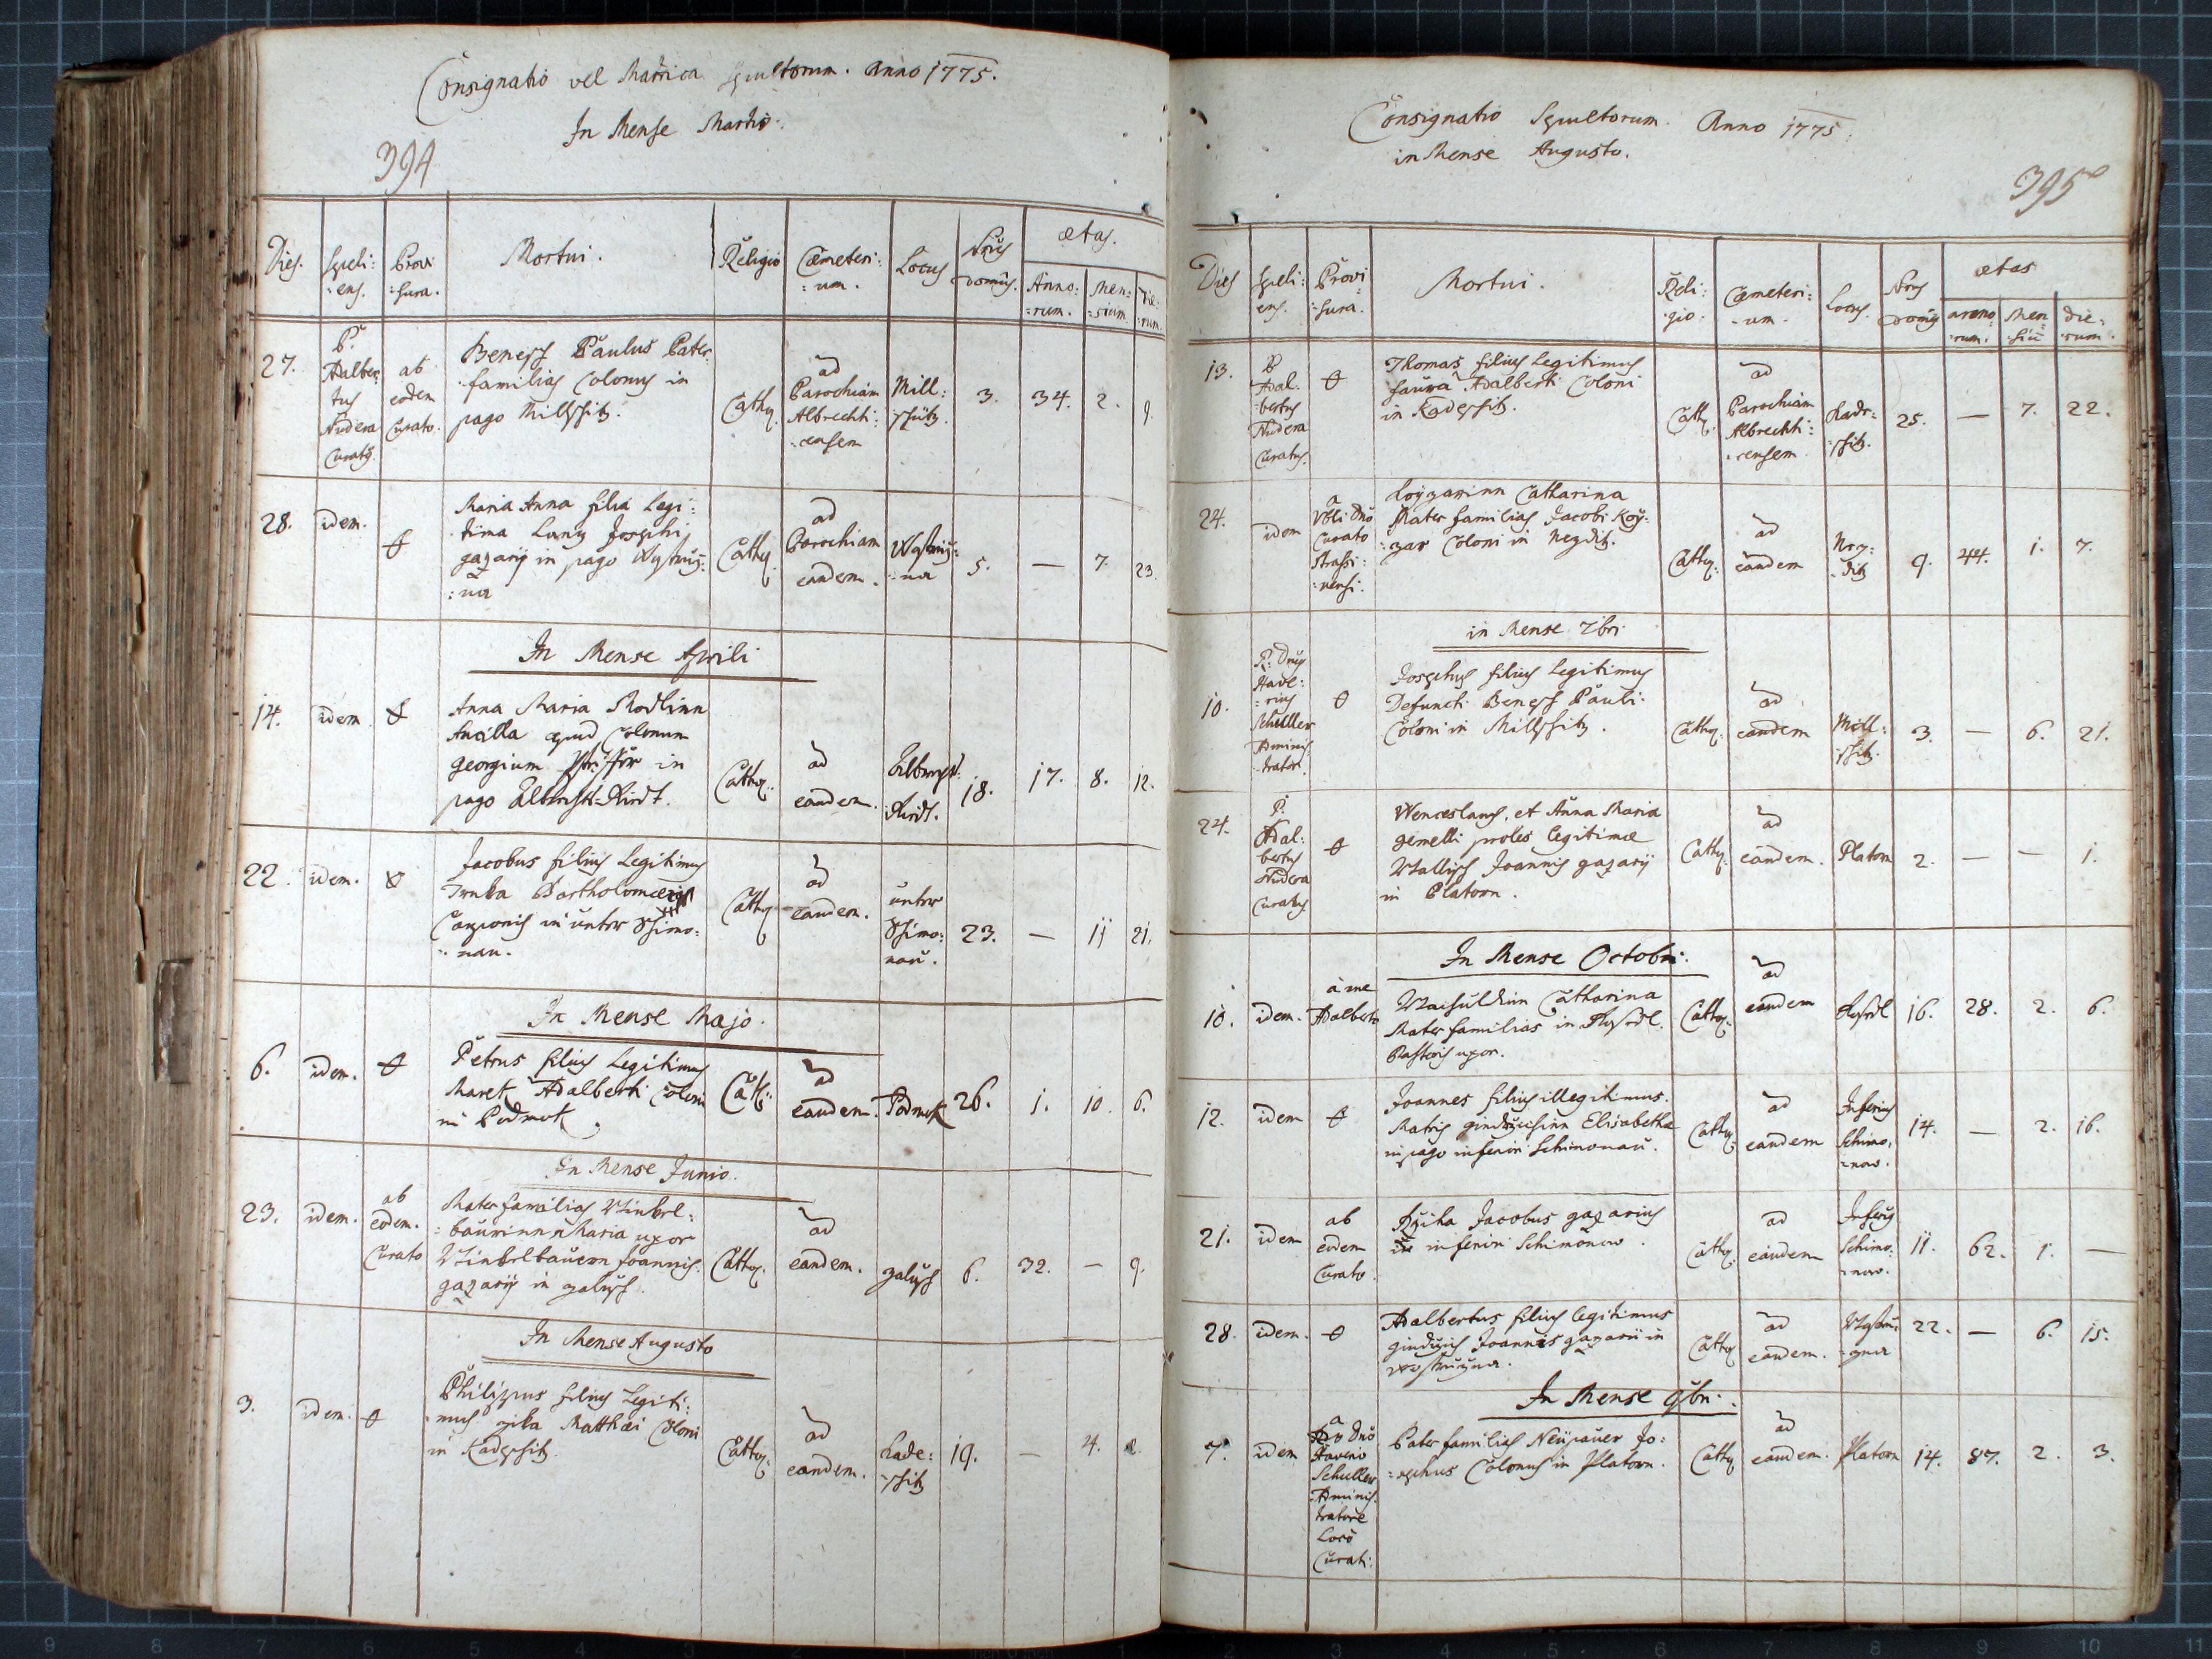 Consignatio vel Matrica Sepultorum. Anno 1775.
In Mense Martio.
394
Dies.
Sepeli:
:ens.
Provi
:sura.
Mortui.
Religio
Cæmeteri:
:um.
Locus
Nrus
domûs.
ætas.
Anno:
:rum.
Men:
:sium
Die:
:rum.
27.
P.
Adalber:
tus
Nudera
Curatus.
ab
eodem
Curato.
Benesch Paulus Pater
:familias Colonus in
pago Millschitz.
Cathol.
ad
Parochiam
Albrechti:
:censem
Mill:
:schitz.
3.
34.
2.
9.
28.
idem.
Maria Anna filia Legi:
:tima Josephi
gazarij in pago
:na
Cathol.
ad
Parochiam
eandem.
:na
5.
—
7.
23.
In Mense Aprili
14.
idem.
Anna Maria Modlinn
Ancilla apud Colonum
georgium in
pago
Cathol.
ad
eandem.
18.
17.
8.
12.
22.
idem.
Jacobus filius Legitimus
Trnka Bartholomæi
Cauponis in unter Schimo:
:nau.
Cathol.
ad
eandem.
unter
Schimo:
nau.
23.
—
11
21.
In Mense Majo.
6.
idem.
Petrus filius Legitimus
Marek Adalberti Coloni
in Podmok.
Cath:
ad
eandem.
Podmok
26.
1.
10.
6.
In Mense Junio.
23.
idem.
ab
eodem.
Curato
Mater familias Winkel:
:baurinn Maria uxor
Winkelbauern Joannis
gazarij in
Cathol.
ad
eandem.
6.
32.
—
9.
In Mense Augusto
3.
idem.
Philippus filius Legiti:
:mus Matthæi Coloni
in Kadeschitz.
Cathol.
ad
eandem.
Kade:
:schitz
19.
—
4.
Consignatio Sepultorum. Anno 1775.
in Mense Augusto.
395
Dies
Sepeli:
ens.
Provi:
:sura.
Mortui.
Reli:
:gio.
Cæmeteri:
:um.
Locus.
Nrus
domûs
ætas
anno:
:rum.
Men:
:siū
die:
:rum.
13.
P
Adal:
:bertus
Nudera
Curatus.
Thomas filius Legitimus
Adalberti Coloni
in Kadeschitz.
Cathol.
ad
Parochiam
Albrechti:
:censem
Kade:
:schitz.
25.
—
7.
22.
24.
idem
a
Dño
Curato
:nensi.
Catharina
Mater familias Jacobi
Coloni in Nezditz.
Cathol.
ad
eandem
Nez:
:ditz
9.
44.
1.
7.
in Mense 7bri
10.
R: Dnus
Schuller
Adminis
:trator.
Josephus filius Legitimus
Defuncti Benesch Pauli
Coloni in Millschitz.
Cathol.
ad
eandem
Mill:
:schitz.
3.
—
6.
21.
24.
P.
Adal:
bertus
Nudera
Curatus
Wenceslaus, et Anna Maria
gemelli proles legitimæ
Wallisch Joannis gazarij
in Platorn.
Cathol.
ad
eandem.
Platorn
2.
—
—
1.
In Mense Octobri.
10.
idem.
à me
Adalberto
Catharina
Mater familias in
Pastoris uxor.
Cathol.
ad
eandem
16.
28.
2.
6.
12.
idem
Joannes filius illegitimus.
Matris Elisabetha
in pago inferiori Schimonau.
Cathol.
ad
eandem
Inferius
Schimo:
:nau.
14.
—
2.
16.
21.
idem
ab
eodem
Curato.
Jacobus gazarius
in inferiori Schimonau.
Cathol.
ad
eandem
Inferius
Schimo:
:nau.
11.
62.
1.
—
28.
idem.
Adalbertus filius legitimus
Joannis gazarii in
Cathol.
ad
eandem.
22.
—
6.
15.
In Mense 9bri.
7.
idem
a
Dño
Schuller
Adminis:
tratore
Loco
Curati.
Pater familias Neupauer Jo:
:sephus Colonus in Platorn.
Cathol.
ad
eandem.
Platorn
14.
87.
2.
3.